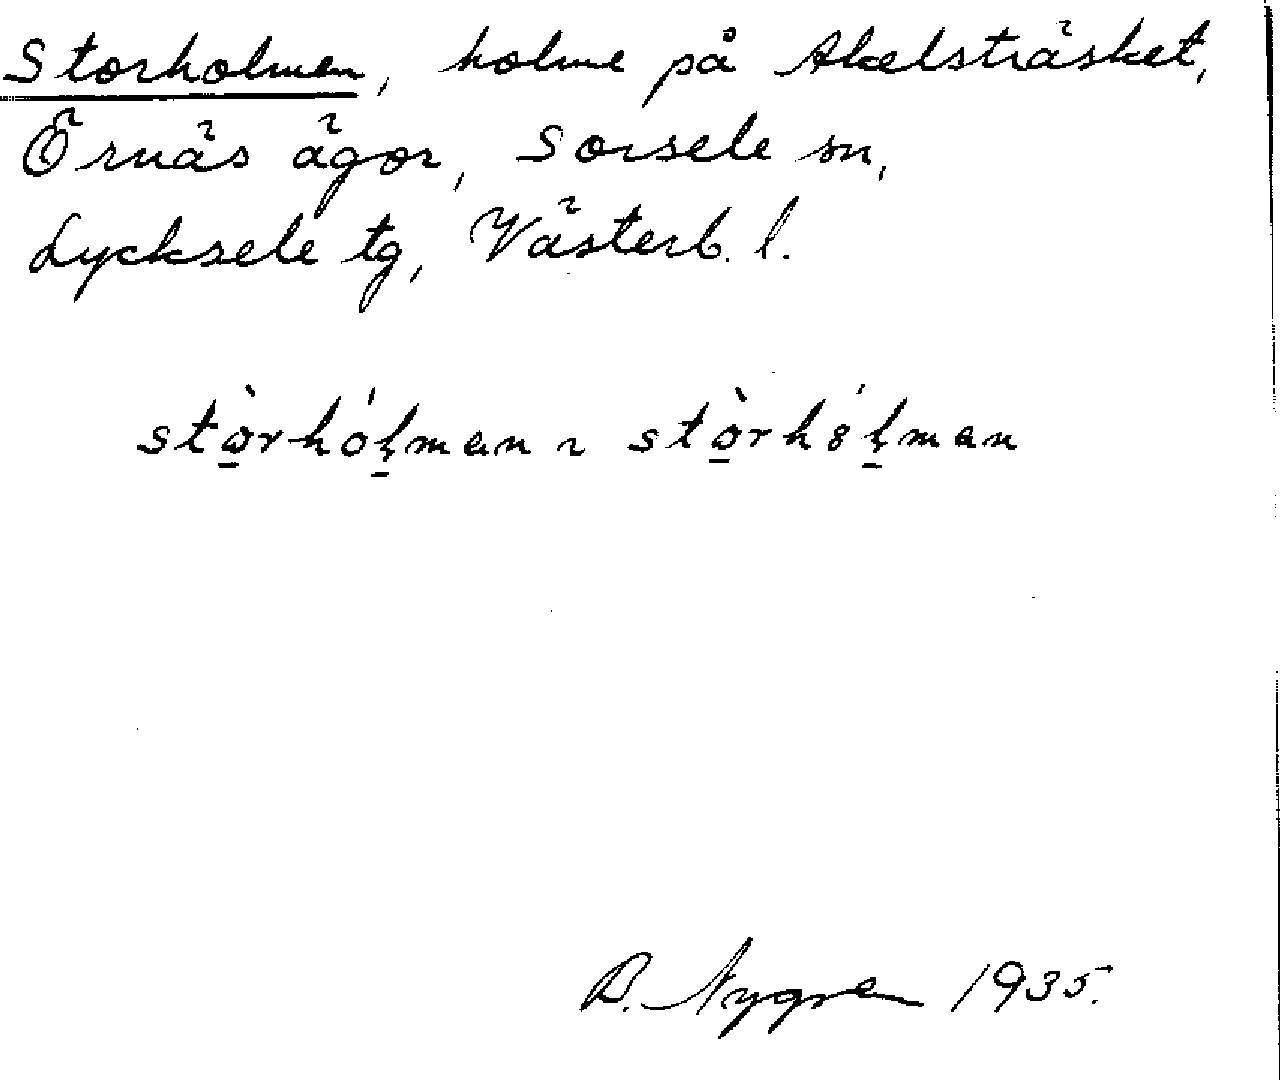 Storholmen, holme på Akelsträsket,
Örnäs ägor, Sorsele sn,
Lycksele tg, Västerb. l.
stò̱rhóḻman ~ stò̱rhóḻman
B. Nygren 1935.